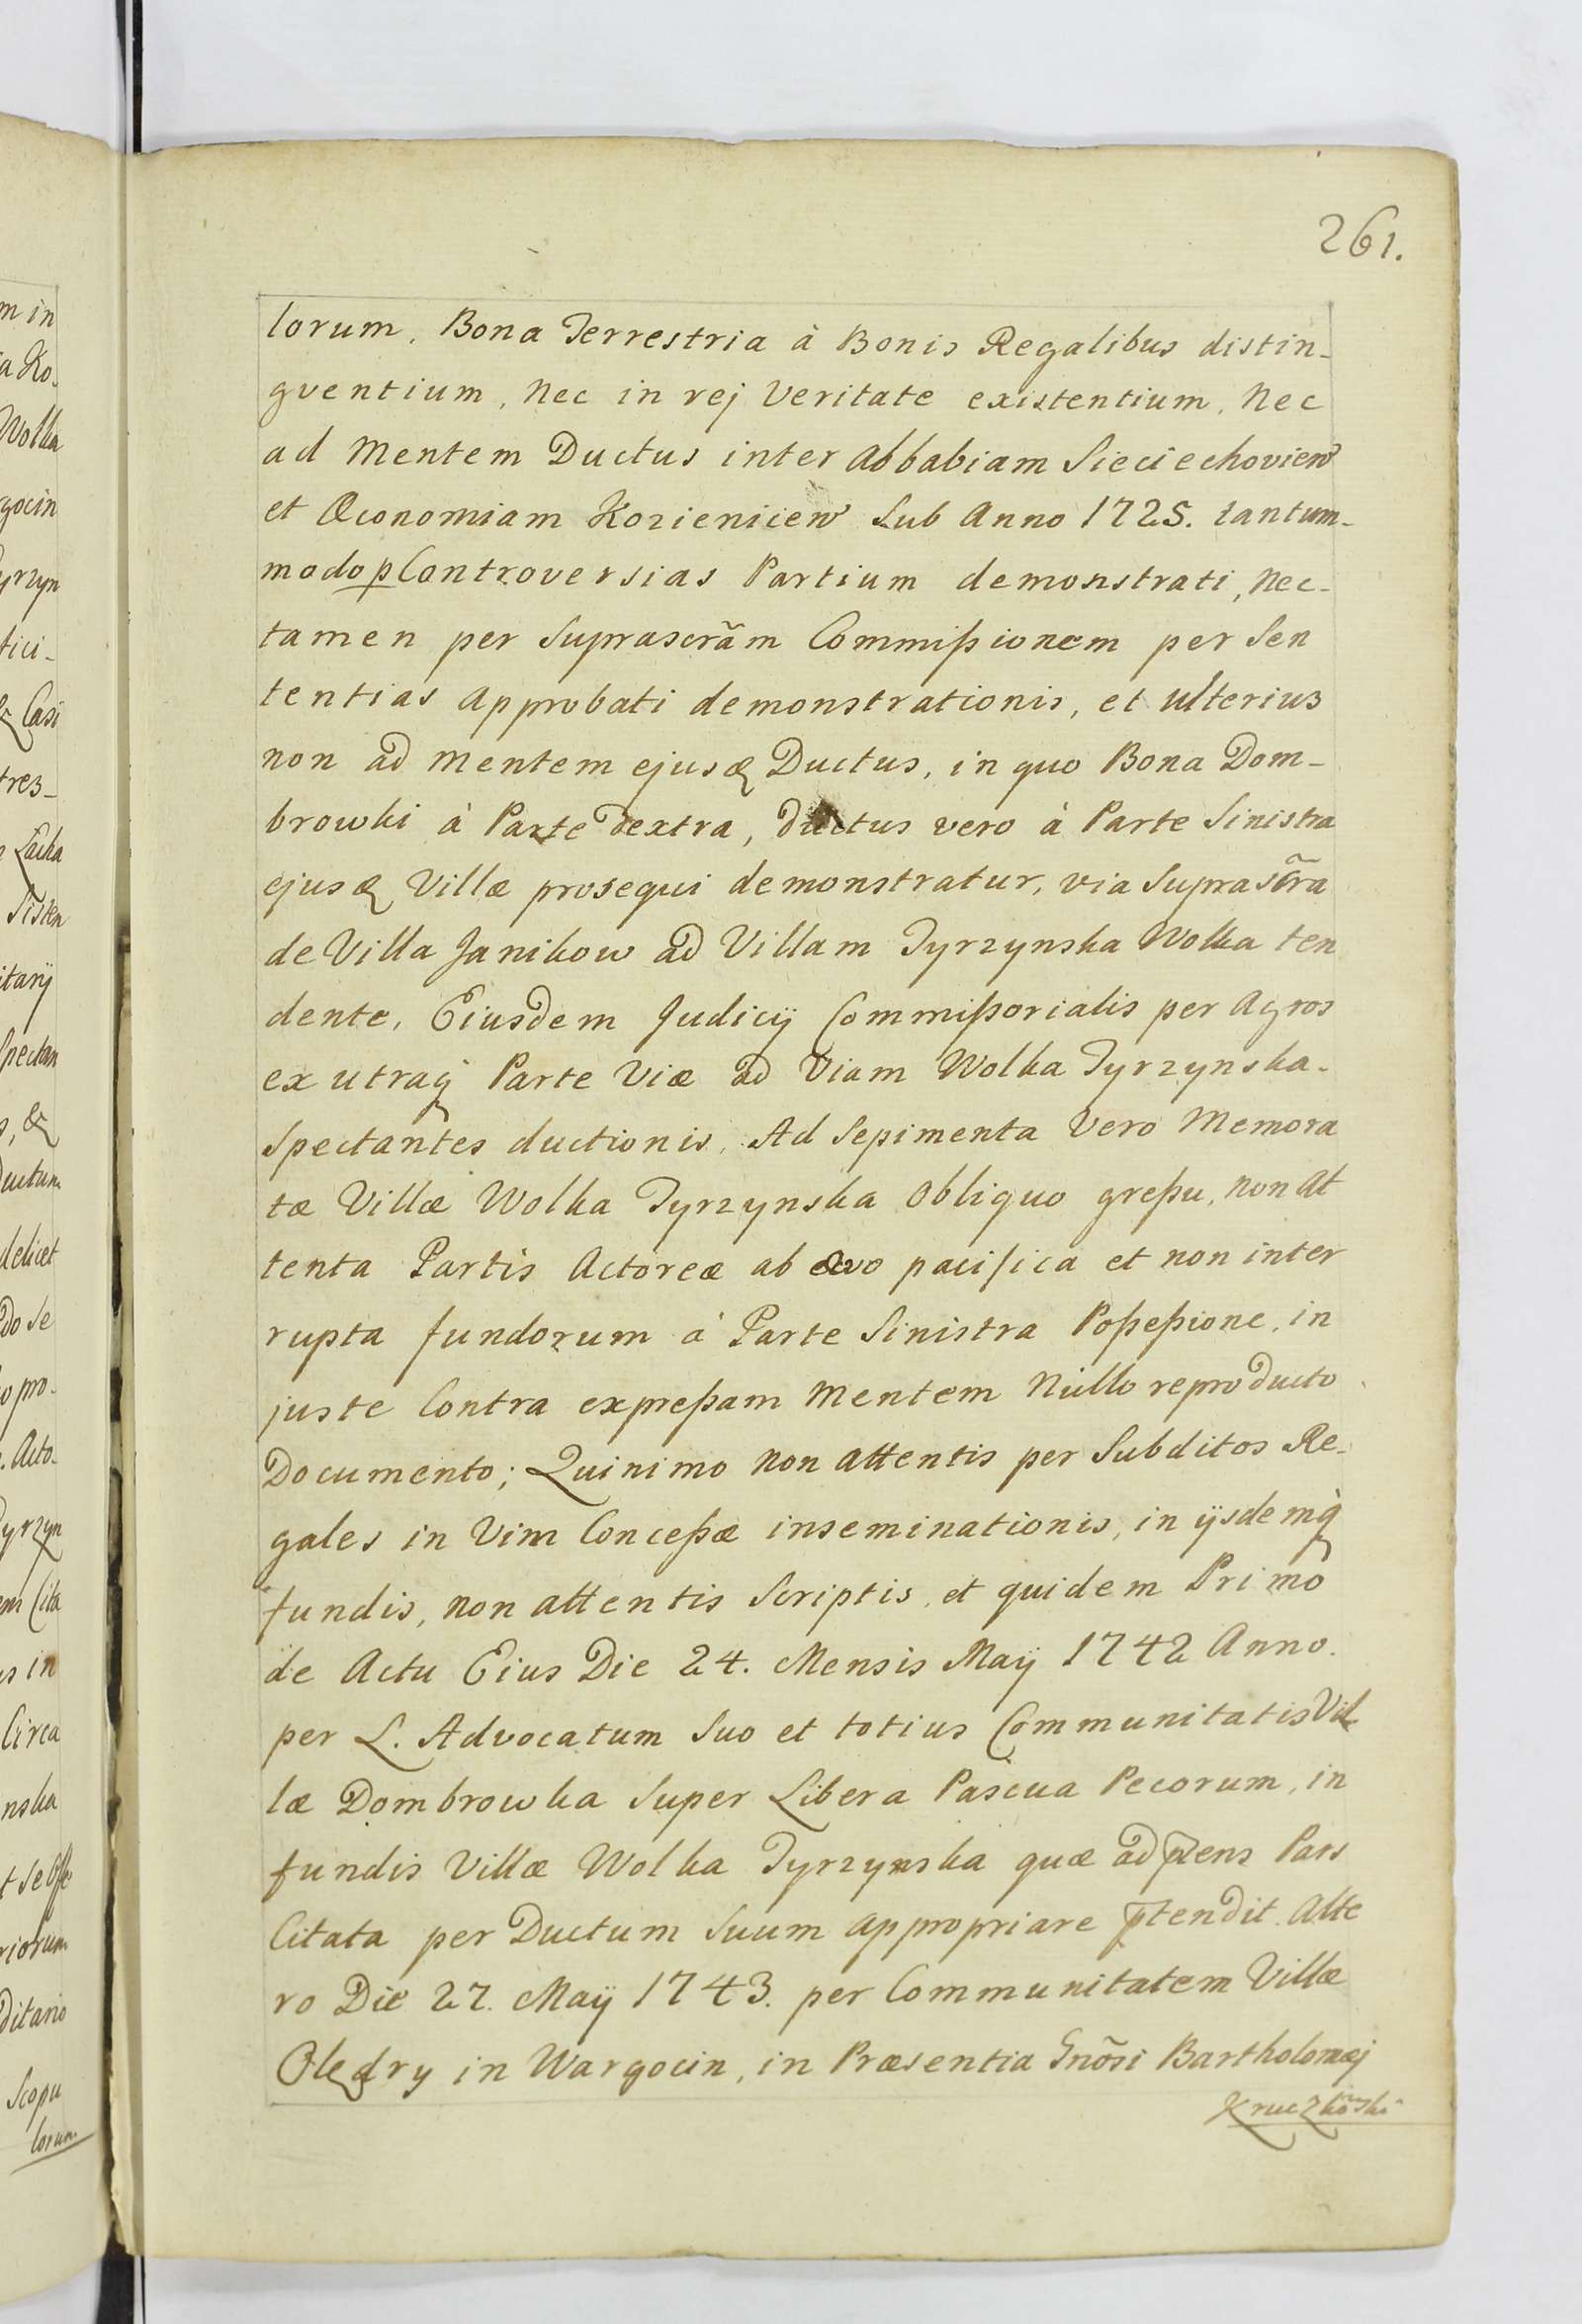 261.
lorum, Bona Terrestria à Bonis Regalibus distin-
gventium, Nec in rej Veritate existentium, Nec
ad Mentem Ductus inter Abbabiam Sieciechovien̄
et Œconomiam Kozienicen̄ Sub Anno 1725. tantum-
modo p Controversias Partium demonstrati, Nec-
tamen per Suprascr̃am Commißionem per Sen
tentias approbati demonstrationis, et ulterius
non ad Mentem ejusd Ductus, in quo Bona Dom-
browki à Parte dextra, ductus vero à Parte Sinistra
ejusd Villæ prosequi demonstratur, via Suprascr̃a
de Villa Janikow ad Villam Tyrzynska Wolka ten
dente, Eiusdem Judicij Commißorialis per Agros
ex utraq Parte Viæ ad Viam Wolka Tyrzynska-
Spectantes ductionis, Ad Sepimenta Vero Memora
tæ Villæ Wolka Tyrzynska obliquo greßu, non at
tenta Partis Actoreæ ab ævo pacifica et non inter
rupta fundorum à Parte Sinistra Poßeßione, in
juste Contra expreßam Mentem Nullo reproducto
Documento; Quinimo non attentis per Subditos Re-
gales in Vim Conceßæ inseminationis, in ijsdemq̀
fundis, non attentis Scriptis, et quidem Primò
de Actu Eius Die 24. Mensis Maÿ 1742 Anno.
per L. Advocatum Suo et totius Communitatis Vil
læ Dombrowka Super Libera Pascua Pecorum, in
fundis Villæ Wolka Tyrzynska quæ ad p̄ens Pars
Citata per Ductum Suum appropriare p̄tendit. Alte
ro Die 27. Maÿ 1743. per Communitatem Villæ
Olędry in Wargocin, in Præsentia Gnõsi Bartholomæj
Kruczkowski